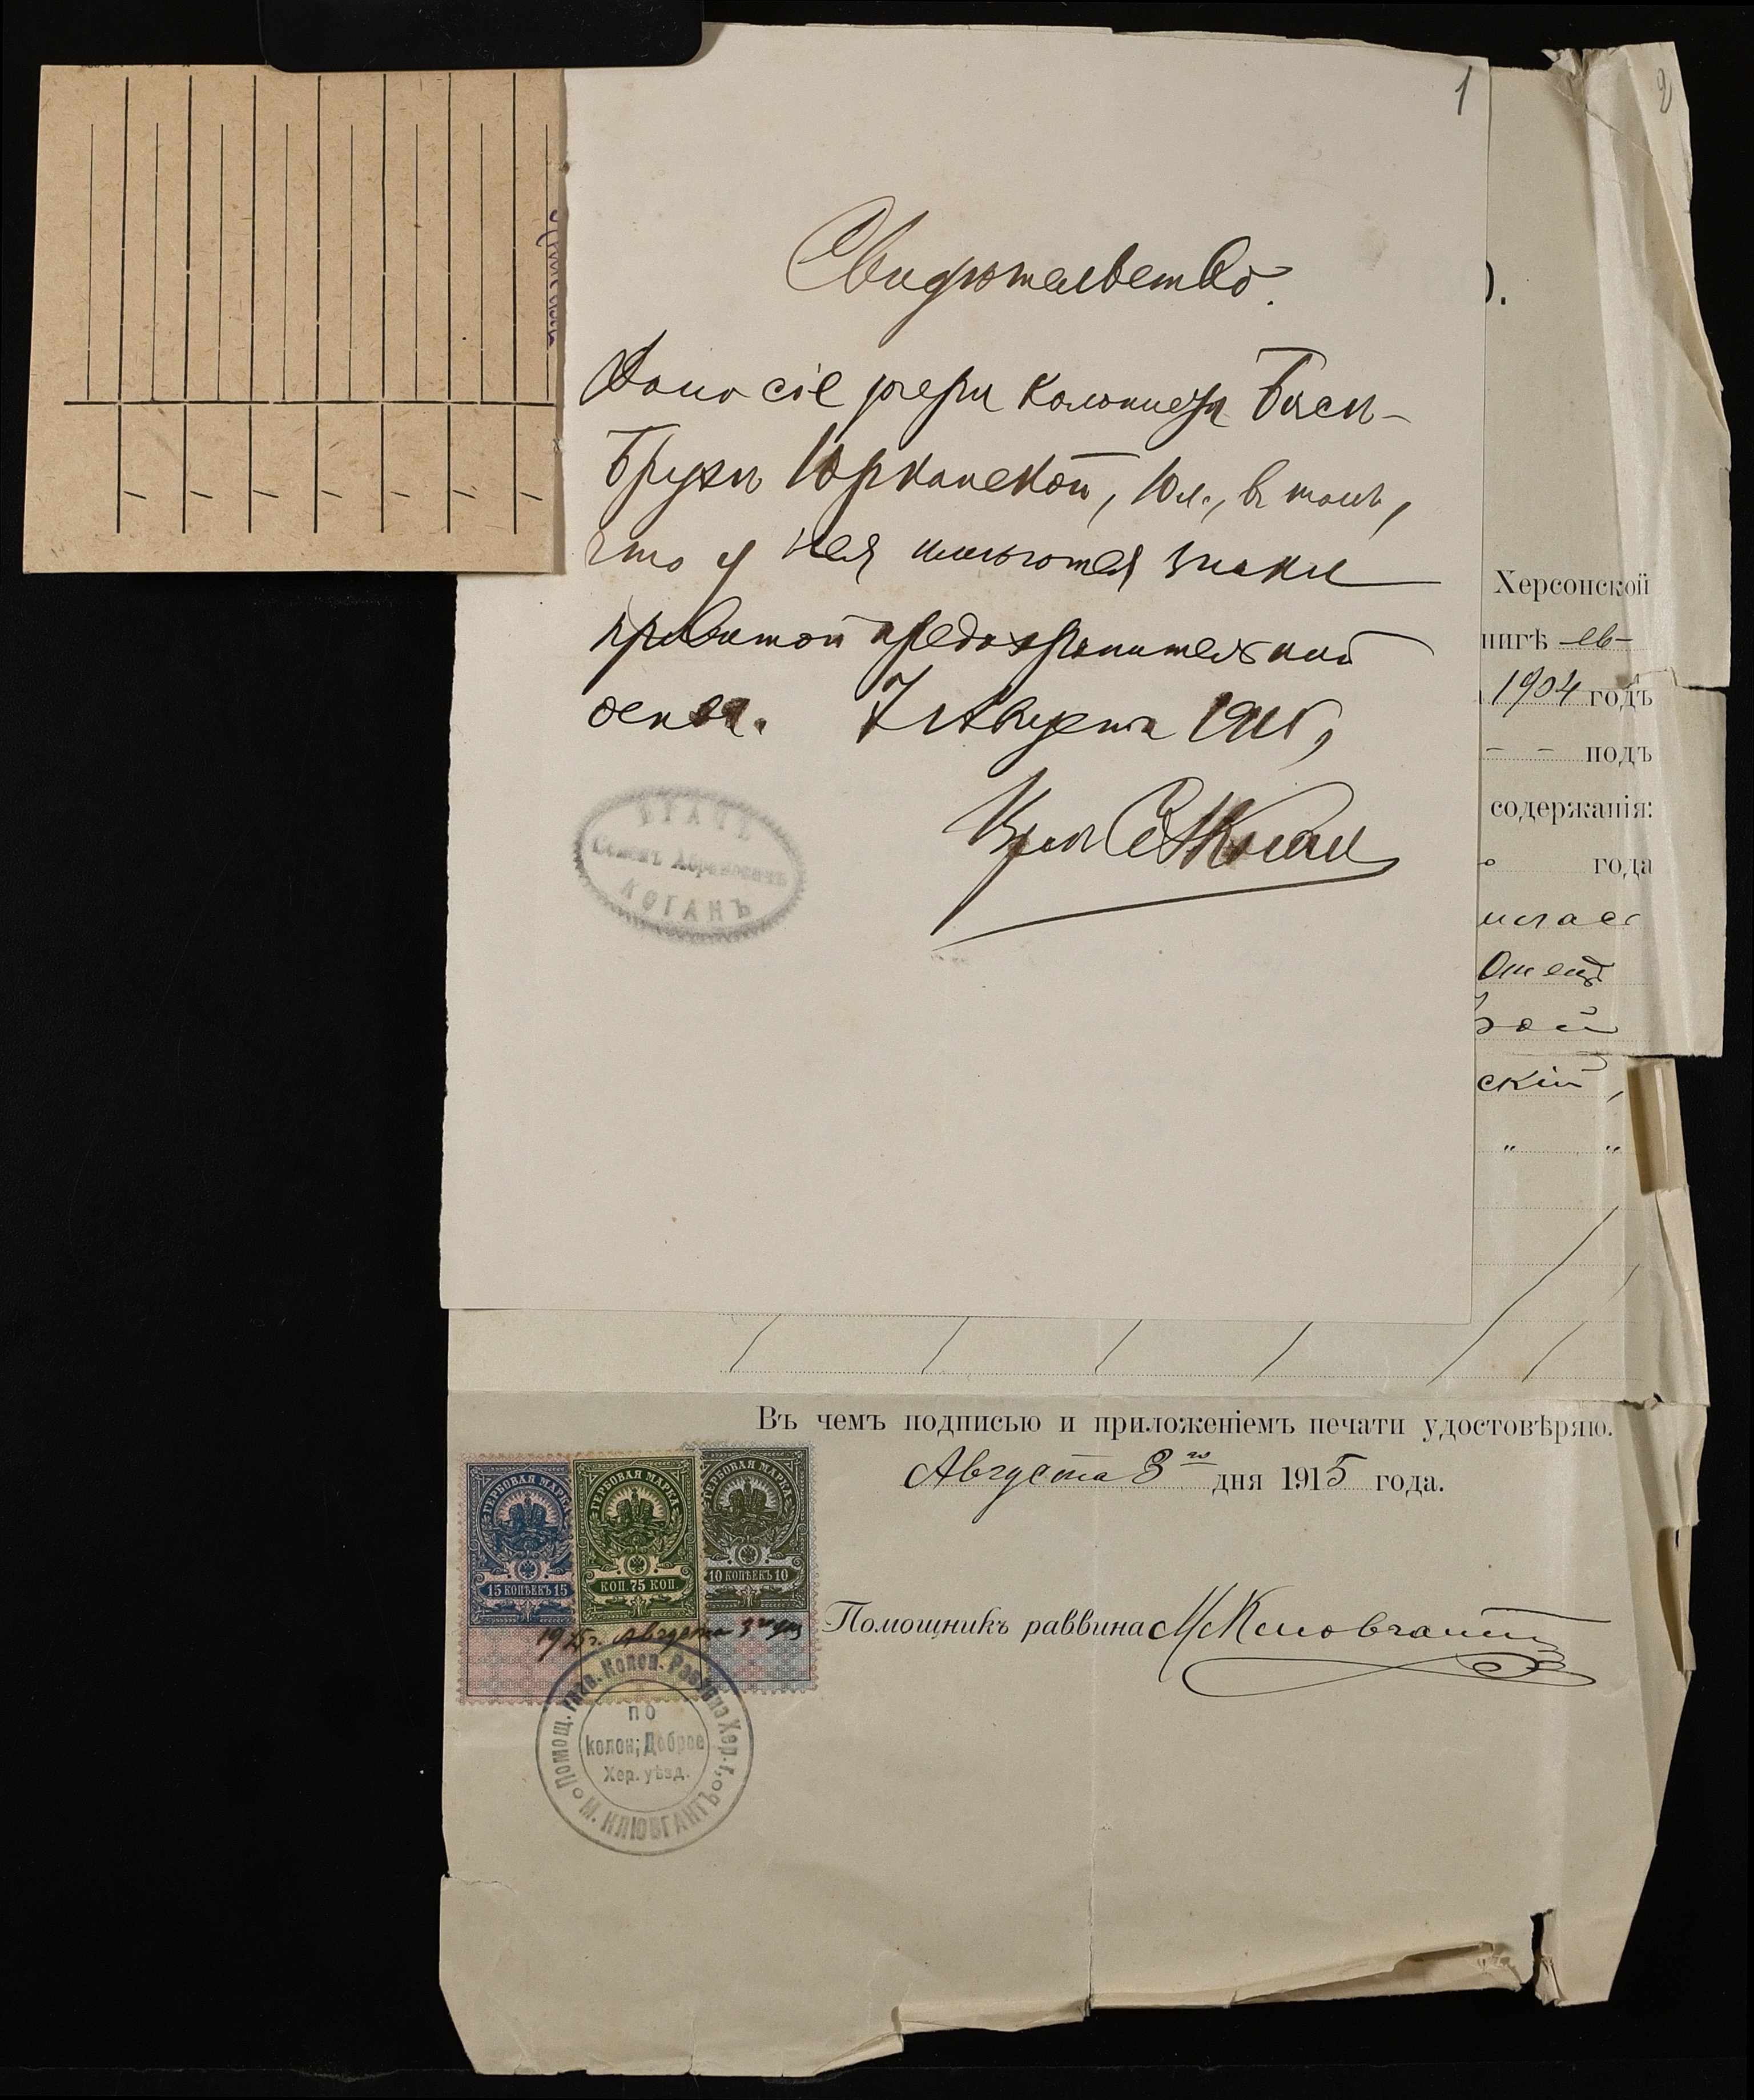 1
2
Свидѣтельство.
Дано сіе дочери колониста Баси-
Брухи Юрканской, 10 л., въ томъ,
что у нея имѣются знаки
привитой предохранительной
оспы. 7 Августа 1915,
Врач С Коган
ВРАЧЪ
Семенъ Абрамовичъ
КОГАНЪ
).
Херсонской
нигѣ ев-
1904 годъ
подъ
содержанія:
года
Отецъ
скій,
Въ чемъ подписью и приложеніемъ печати удостовѣряю.
Августа 3го дня 1915 года.
ГЕРБОВАЯ МАРКА
15 КОПѢЕКЪ 15
ГЕРБОВАЯ МАРКА
КОП. 75 КОП.
ГЕРБОВАЯ МАРКА
10 КОПѢЕКЪ 10
1915 г. Августа 3го дня
Помощникъ раввина М Клювгантъ
Помощ. Колон. Раввина Хер. г.
по
колон; Доброе
Хер. уѣзд.
М. КЛЮВГАНТЪ